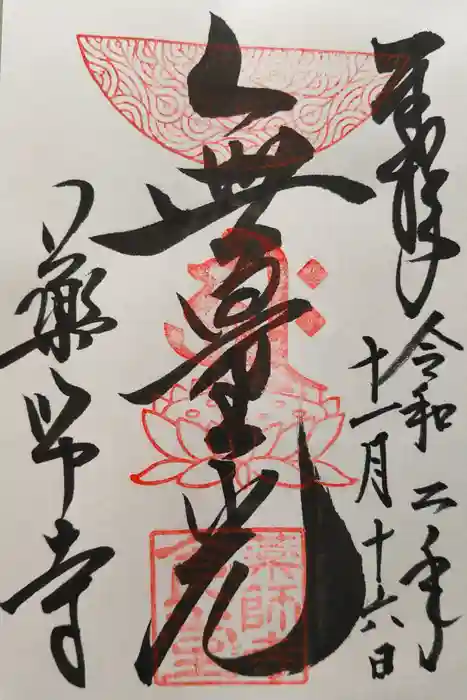 奉拝
令和二年
十一月十六日
無量光
薬師寺